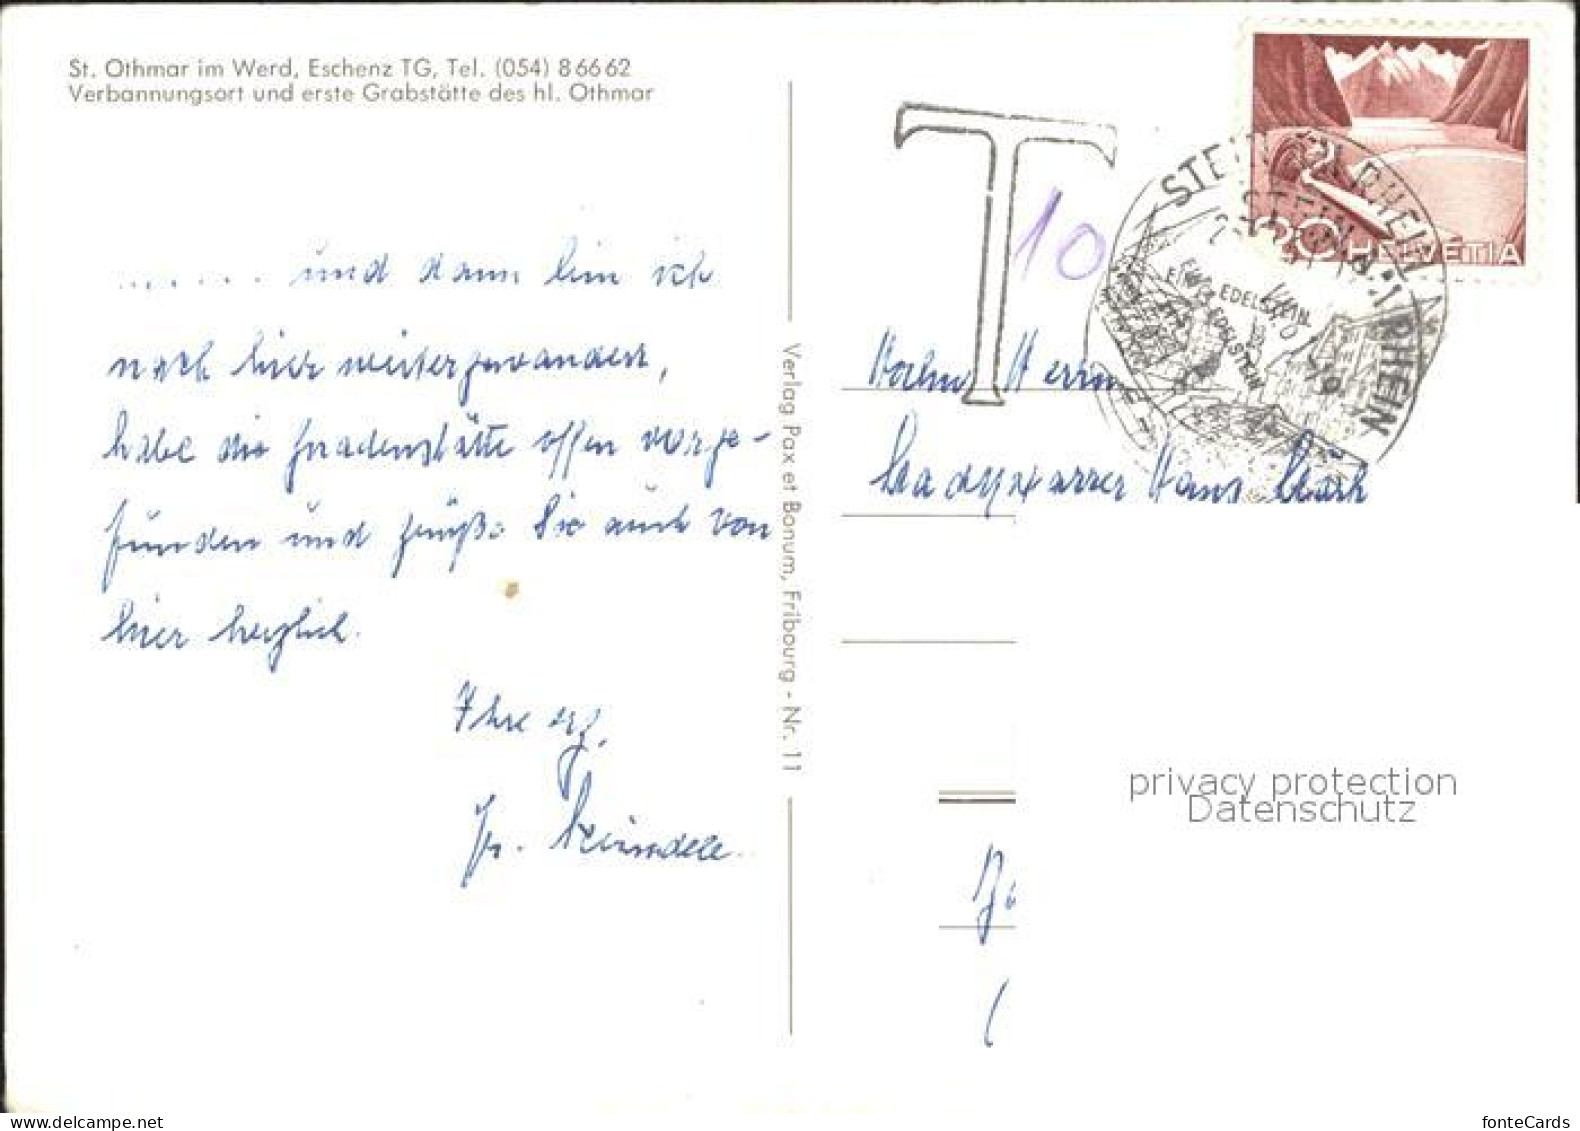 St. Othmar im Werd, Eschenz TG, Tel. (054) 8 66 62
Verbannungsort und erste Grabstätte des hl. Othmar
....... und dann bin ich
nach hier weitergewandert,
habe die Gnadenstätte offen vorge-
funden und grüße Sie auch von
hier herzlich.
Ihre erg.
Verlag Pax et Bonum, Fribourg - Nr. 11
T
10
20 HELVETIA
STEIN AM RHEIN
EDELSTEIN
EDELSTEIN
RHEIN
Hochw. Herrn
Stadtpfarrer Hans
privacy protection
Datenschutz
fonteCards